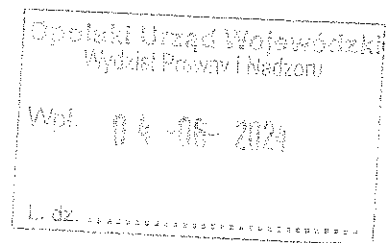 Opolski Urząd Wojewódzki
Wydział Prawny i Nadzoru
Wpł. 04 -06- 2024
L. dz. ........................................